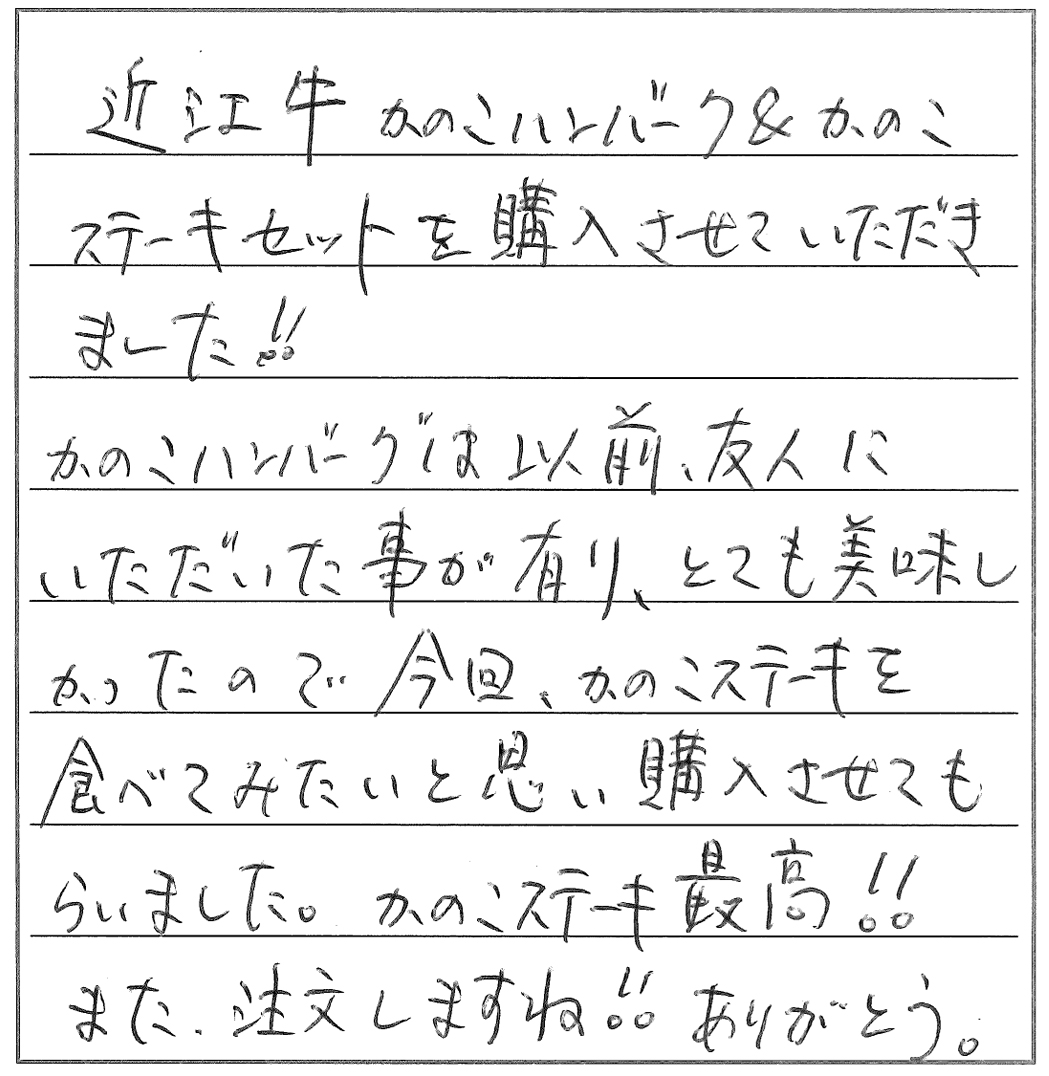 近江牛かのこハンバーク&かのこ
ステーキセットを購入させていただき
ました!!
かのこハンバーグは以前、友人に
いただいた事が有り、とても美味し
かったので今回、かのこステーキを
食べてみたいと思い購入させても
らいました。かのこステーキ最高!!
また、注文しますね!!ありがとう。